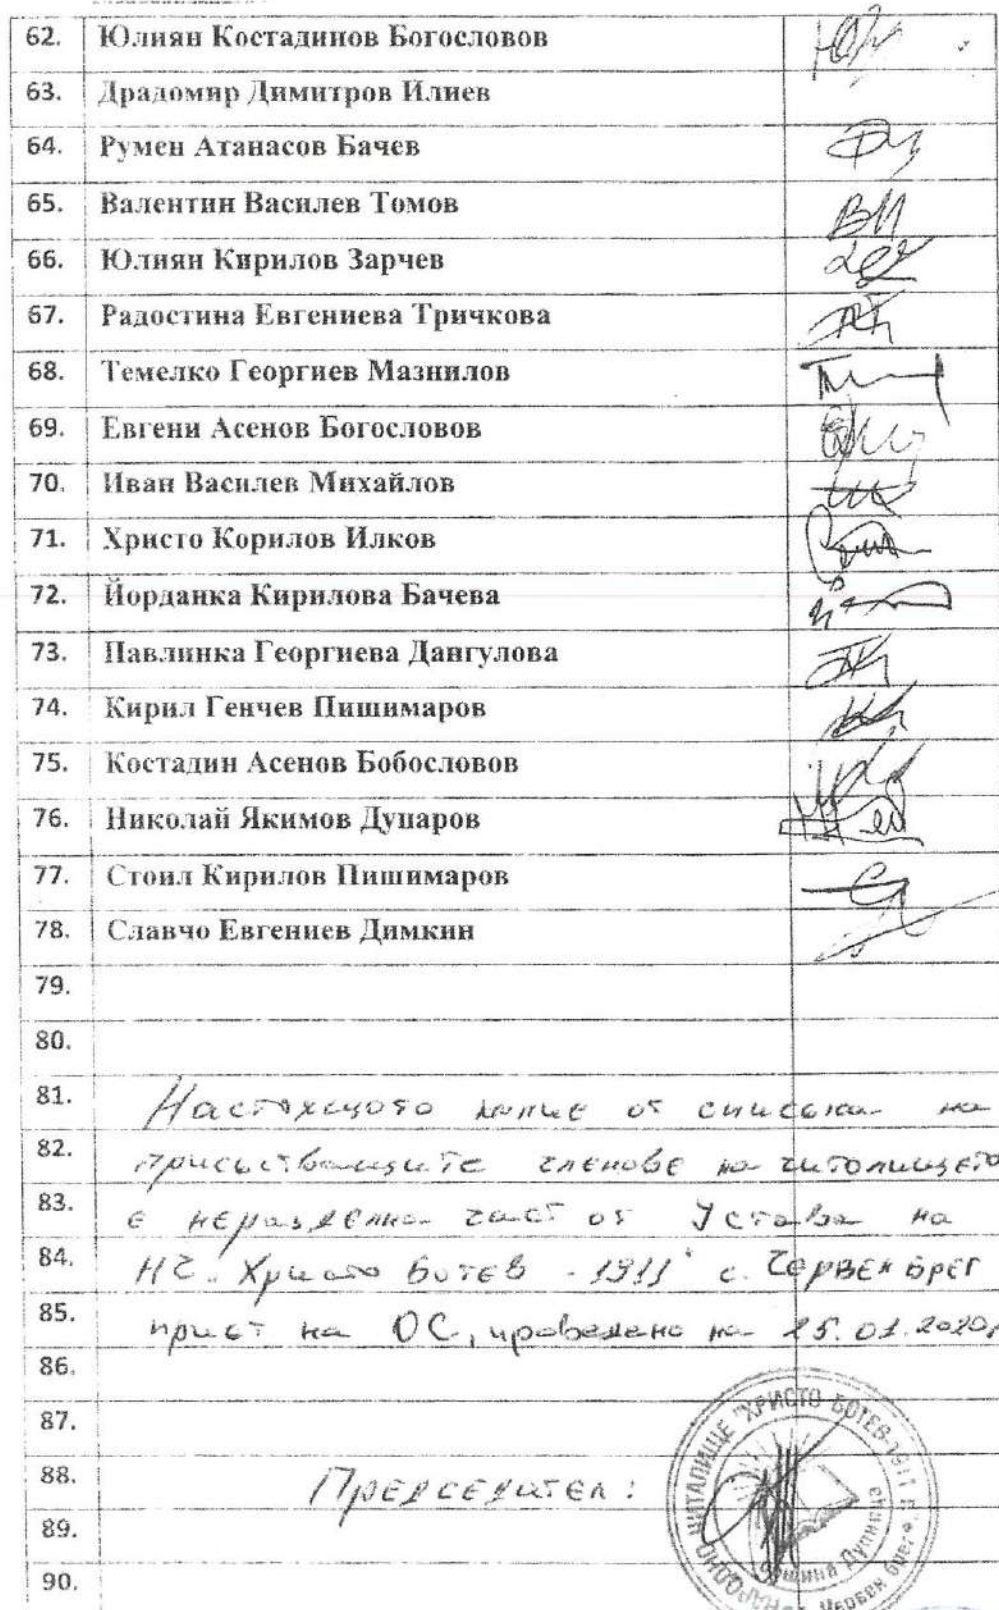 62. Юлиян Костадинов Богословов
63. Драдомир Димитров Илиев
64. Румен Атанасов Бачев
65. Валентин Василев Томов
66. Юлиян Кирилов Зарчев
67. Радостина Евгениева Тричкова
68. Темелко Георгиев Мазнилов
69. Евгени Асенов Богословов
70. Иван Василев Михайлов
71. Христо Корилов Илков
72. Йорданка Кирилова Бачева
73. Павлинка Георгиева Дангулова
74. Кирил Генчев Пишимаров
75. Костадин Асенов Бобословов
76. Николай Якимов Дупаров
77. Стоил Кирилов Пишимаров
78. Славчо Евгениев Димкин
79.
80.
81. Настоящото копие от списъка на
82. присъстващите членове на читалището
83. е неразделна част от Устава на
84. НЧ "Христо Ботев - 1911" с. Червен брег
85. приет на ОС, проведено на 25.01.2020г
86.
87.
88. Председател:
89.
90.
НАРОДНО ЧИТАЛИЩЕ "ХРИСТО БОТЕВ-1911 г."
Община Дупница
Червен брег